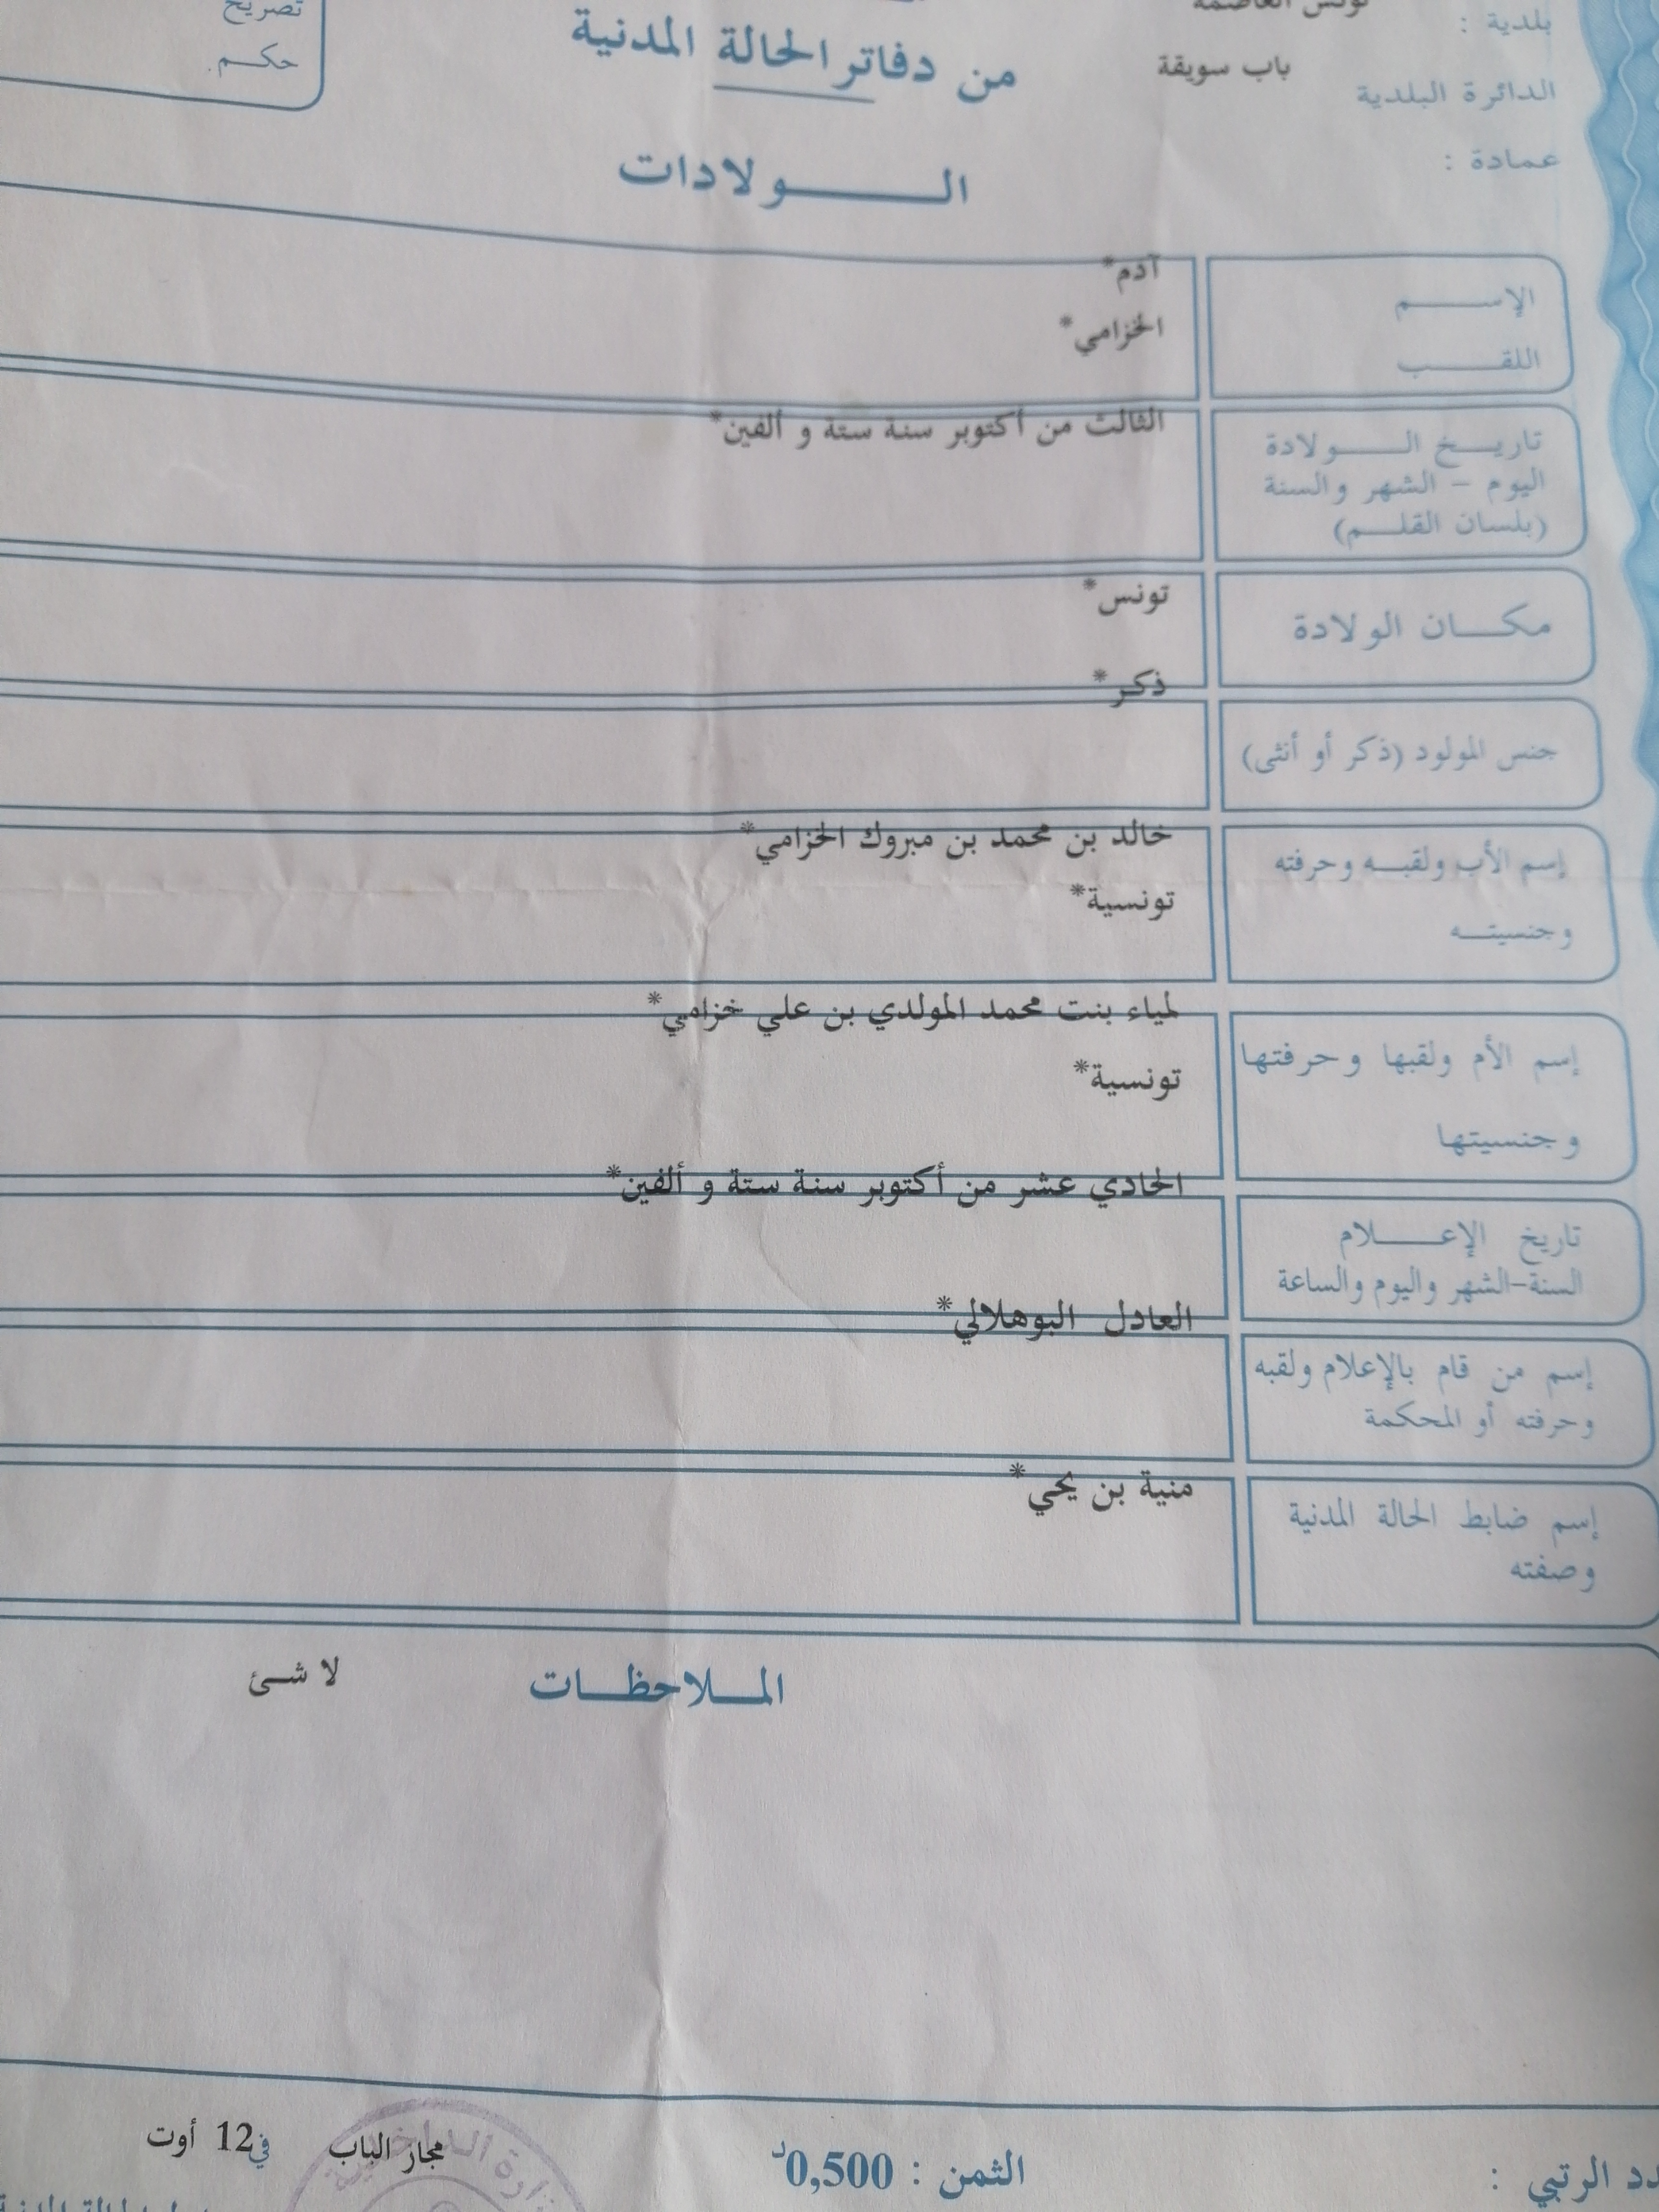 بلدية : تونس العاصمة
تصريح
من دفاتر الحالة المدنية
الدائرة البلدية باب سويقة
حكم.
عمادة :
الـــولادات
الإســـم آدم*
اللقـــب الخزامي*
تاريـــخ الـــولادة الثالث من أكتوبر سنة ستة و ألفين*
اليوم – الشهر والسنة
(بلسان القلـــم)
مكـــان الولادة تونس*
ذكر*
جنس المولود (ذكر أو أنثى)
إسم الأب ولقبـــه وحرفته خالد بن محمد بن مبروك الخزامي*
وجنسيتـــه تونسية*
إسم الأم ولقبها وحرفتها لمياء بنت محمد المولدي بن علي خزامي*
وجنسيتها تونسية*
الحادي عشر من أكتوبر سنة ستة و ألفين*
تاريخ الإعـــلام
السنة-الشهر واليوم والساعة
العادل البوهلالي*
إسم من قام بالإعلام ولقبه
وحرفته أو المحكمة
إسم ضابط الحالة المدنية منية بن يحي*
وصفته
المـــلاحظـــات لا شئ
الرتبي : الثمن : 0,500د مجاز الباب في 12 أوت